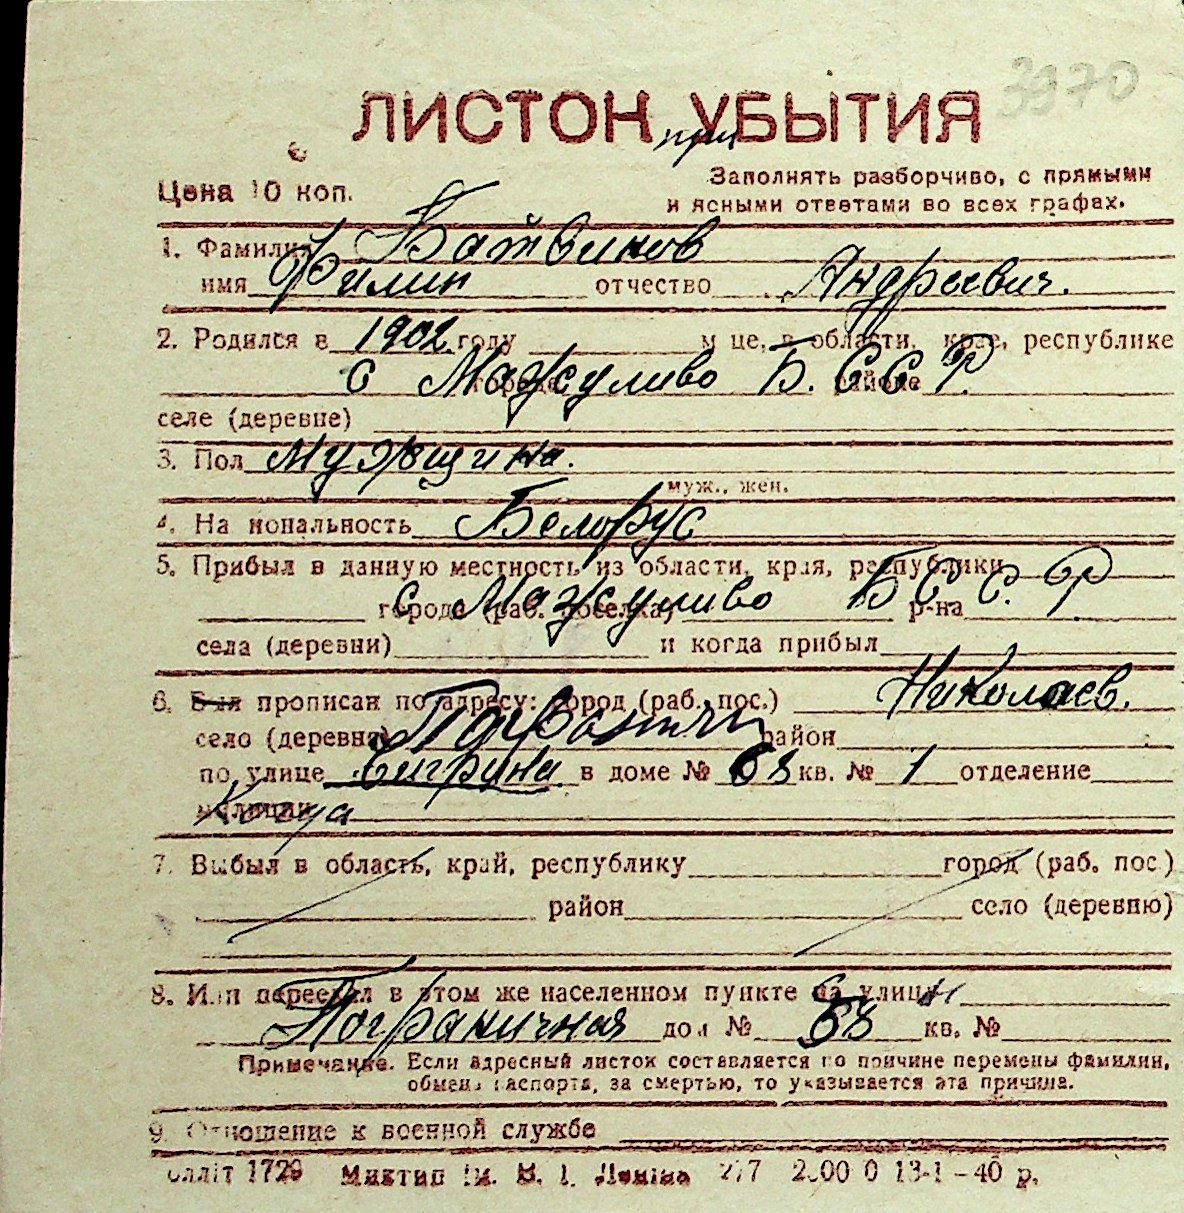 3970
ЛИСТОК УБЫТИЯ
при
Цена 10 коп.
Заполнять разборчиво, с прямыми
и ясными ответами во всех графах.
1. Фамилия Батвинов
имя Филип отчество Андреевич.
2. Родился в 1902 году м-це, в области, крае, республике
с Мажуливо Б.ССР. городе районе
селе (деревне)
3. Пол Мужщина.
муж., жен.
4. Национальность Белорус
5. Прибыл в данную местность из области, края, республики
с Мажуливо БССР города (раб. поселка) р-на
села (деревни) и когда прибыл
6. Был прописан по адресу: город (раб. пос.) Николаев.
село (деревня) район
по улице в доме № 68 кв. № 1 отделение
милиции
7. Выбыл в область, край, республику город (раб. пос.)
район село (деревню)
8. Или переехал в этом же населенном пункте на улицу
Пограничная дом № 58 кв. №
Примечание. Если адресный листок составляется по причине перемены фамилии,
обмена паспорта, за смертью, то указывается эта причина.
9. Отношение к военной службе
оллiт 1729 Миктип Iм. В. I. Ленiна 13-1-40 р.